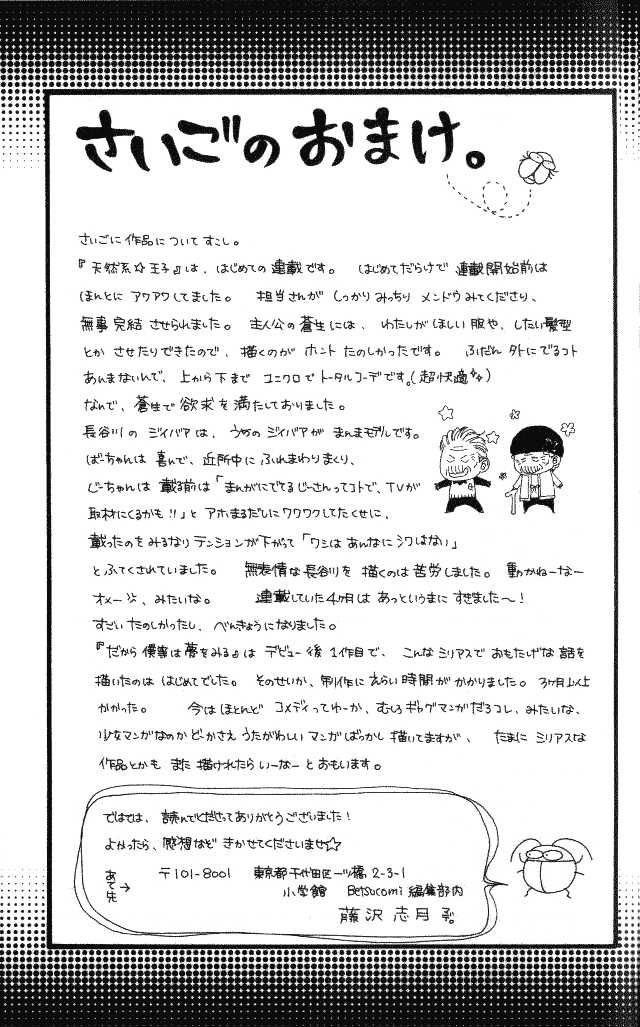 さいごのおまけ。
さいごに作品についてすこし。
『天然系☆王子』は、はじめての連載です。 はじめてだらけで連載開始前は
ほんとにアワアワしてました。 担当さんがしっかりみっちりメンドウみてくださり、
無事完結させられました。 主人公の蒼生には、わたしがほしい服や、したい髪型
とかさせたりできたので、描くのがホントたのしかったです。 ふだん外にでるコト
あんまないんで、上から下までユニクロでトータルコーデです。(超快適)
なんで、蒼生で欲求を満たしておりました。
長谷川のジイバアは、うちのジイバアがまんまモデルです。
ばーちゃんは喜んで、近所中にふれまわりまくり、
じーちゃんは載る前は「まんがにでてるじーさんってコトで、TVが
取材にくるかも!!」とアホまるだしにワクワクしてたくせに、
載ったのをみるなりテンションが下がって「ワシはあんなにシワはない」
とふてくされていました。 無表情な長谷川を描くのは苦労しました。動かねーなー
オメー、みたいな。 連載していた4ヶ月はあっというまにすぎました〜!
すごいたのしかったし、べんきょうになりました。
『だから僕等は夢をみる』はデビュー後1作目で、こんなシリアスでおもたげな話を
描いたのははじめてでした。そのせいか、制作にえらい時間がかかりました。3ヶ月以上
かかった。 今はほとんどコメディってゆーか、むしろギャグマンガだろコレ、みたいな、
少女マンガなのかどーかさえうたがわしいマンガばっかし描いてますが、 たまにシリアスな
作品とかもまた描けれたらいーなーとおもいます。
ではでは、読んでくださってありがとうございました!
よかったら、感想などきかせてくださいませ☆
あて先→
〒101-8001 東京都千代田区一ツ橋2-3-1
小学館 Betsucomi編集部内
藤沢志月